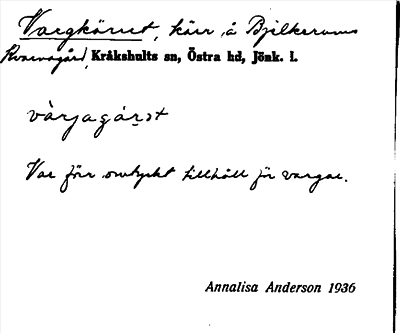 Vargkärret, kärr å Bjälkerums
Kvarnagård, Kråkshults sn, Östra hd, Jönk. l.
Var förr omtyckt tillhåll för vargar.
Annalisa Anderson 1936